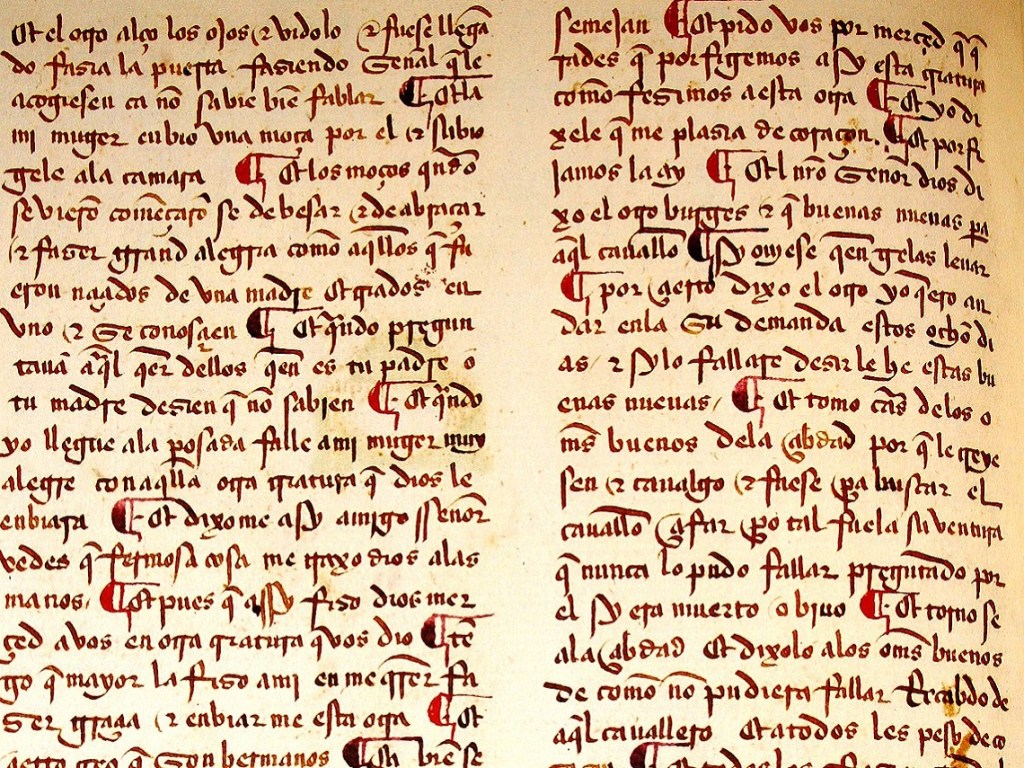 Et el otro alço los ojos & vidolo & fuese llegan
do fazia la puerta faziendo Señal q̄ le
acogiesen ca nō sabie biē fablar ¶ Et la
mi muger enbio vna moça por el & subio
gele ala camara ¶ Et los moços qndō
se vierō comēçarō se de besar & de abraçar
& fazer grand alegria como aq̄llos q̄ fu
eron naados de vna madre Et criados en
vno & se conosçien ¶ Et q̄ndo pregun
tauā aq̄l qer dellos qen es tu padre o
tu madre dezien q̄ nō sabien ¶ Et q̄ndo
yo llegue ala posada falle a mi muger muy
alegre con aq̄lla otra criatura q̄ dios le
enbiara ¶ Et dixome asy amigo Señor
vedes q̄ fermosa cosa me traxo dios alas
manos ¶ Et pues q̄ asy fizo dios mer
çed a vos en otra criatura q̄ vos dio ¶ tē
go q̄ mayor la fizo a mi en me qrer fa
zer graçia & enbiar me esta otra ¶ Et
çierto creo q̄ son hermanos ¶ Ca biē se
semejan ¶ Et pido vos por merçed q̄ q̄
rades q̄ porfigemos asy esta criatura
como fezimos a esta otra ¶ Et yo di
xele q̄ me plazia de coraçon ¶ Et porfi
jamos la ay ¶ Et l nr̄o Señor dios di
xo el otro burges & q̄ buenas nueuas pa
aq̄l cauallo ¶ Sy ouyese qen gelas leuar
¶ por çierto dixo el otro yo qero an
dar en la su demanda estos ocho di
as & sy lo fallare dezir le he estas bu
enas nueuas ¶ Et tomo cr̄as de los o
ms̄ buenos dela çibdad por q̄ le creye
sen & caualgo & fuese pa buscar el
cauallo çifar po tal fue la su ventura
q̄ nunca lo pudo fallar pregūtādo por
el sy era muerto o biuo ¶ Et torno se
ala çibdad Et dixolo alos oms̄ buenos
de como nō pudiera fallar Recabdo de
aq̄l cauallero Et a todos les peso de co